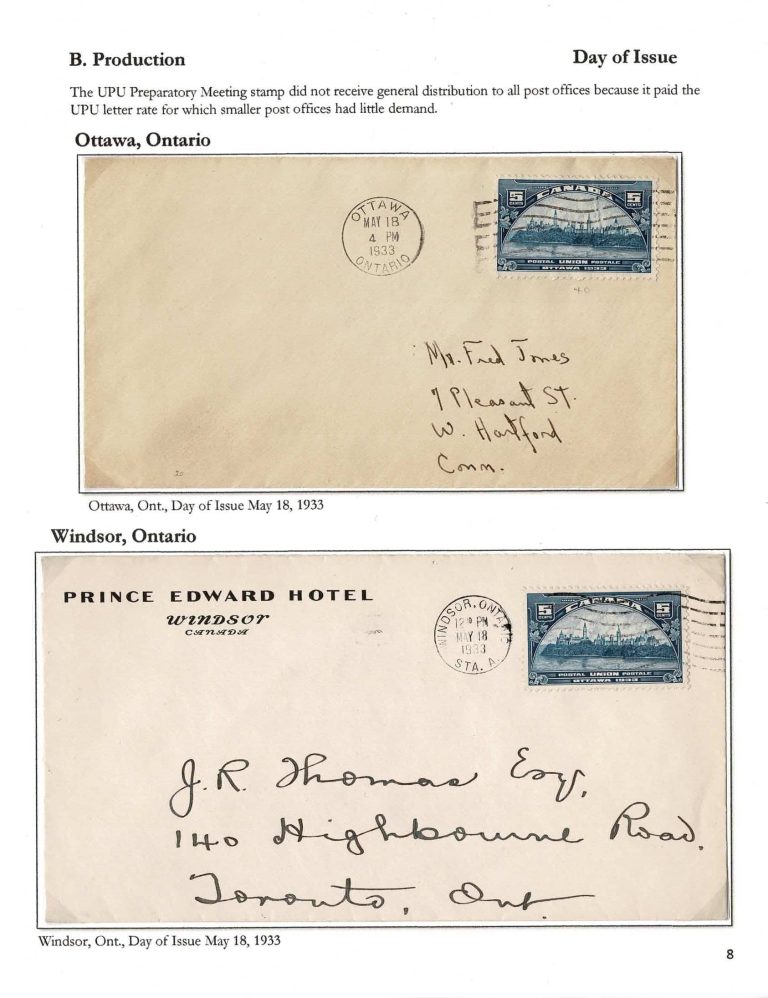 B. Production
Day of Issue
The UPU Preparatory Meeting stamp did not receive general distribution to all post offices because it paid the
UPU letter rate for which smaller post offices had little demand.
Ottawa, Ontario
OTTAWA
MAY 18
4 PM
1933
ONTARIO
5 CANADA 5
CENTS CENTS
POSTAL UNION POSTALE
OTTAWA 1933
40
Mr. Fred Jones
7 Pleasant St.
W. Hartford
Conn.
20
Ottawa, Ont., Day of Issue May 18, 1933
Windsor, Ontario
PRINCE EDWARD HOTEL
WINDSOR
CANADA
WINDSOR, ONTARIO
12 PM
MAY 18
1933
STA. A.
5 CANADA 5
CENTS CENTS
POSTAL UNION POSTALE
OTTAWA 1933
J. R. Thomas Esq.
140 Highbourne Road.
Toronto, Ont.
Windsor, Ont., Day of Issue May 18, 1933
8